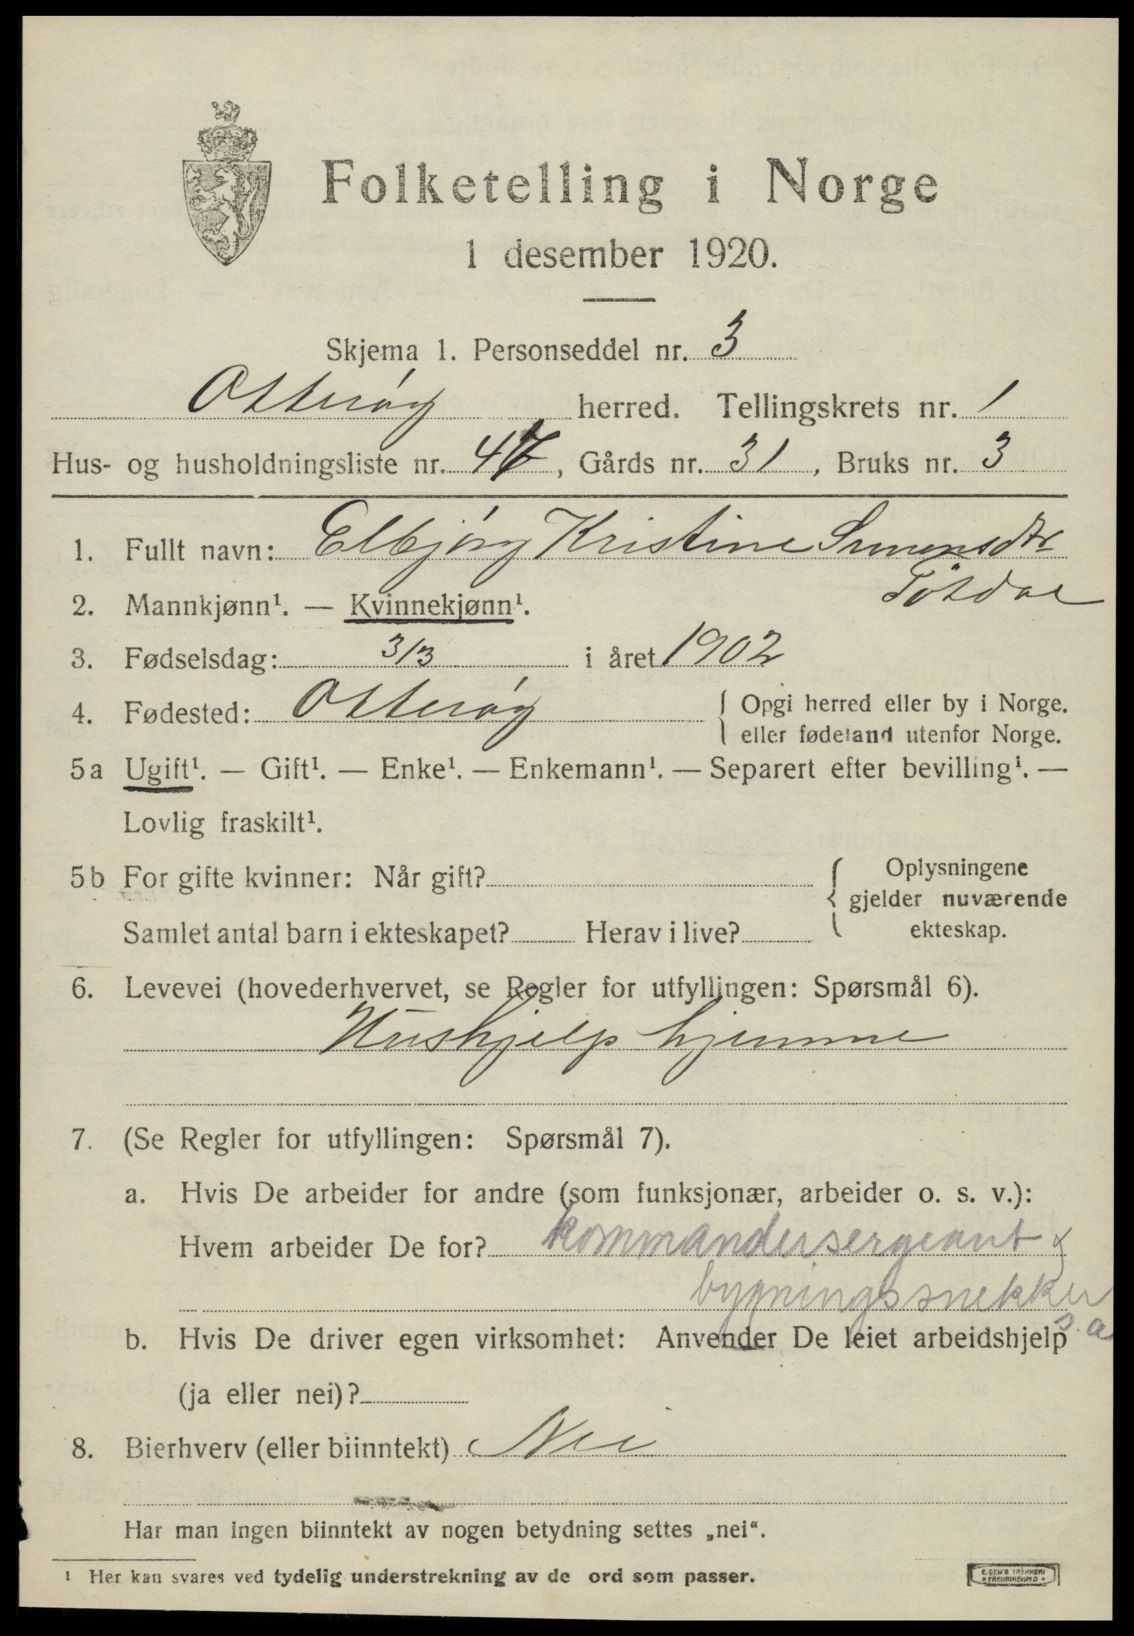 Folketelling i Norge
1 desember 1920.
Skjema 1. Personseddel nr. 3
Otterøy herred. Tellingskrets nr. 1
Hus- og husholdningsliste nr. 47, Gårds nr. 31, Bruks nr. 3
1. Fullt navn: Elbjørg Kristine Simonsdtr
2. Mannkjønn¹. — Kvinnekjønn¹.
3. Fødselsdag: 3/3 i året 1902
4. Fødested: Otterøy { Opgi herred eller by i Norge.
eller fødeland utenfor Norge.
5a Ugift¹. — Gift¹. — Enke¹. — Enkemann¹. — Separert efter bevilling¹. —
Lovlig fraskilt¹.
5b For gifte kvinner: Når gift? { Oplysningene
gjelder nuværende
Samlet antal barn i ekteskapet? Herav i live? ekteskap.
6. Levevei (hovederhvervet, se Regler for utfyllingen: Spørsmål 6).
Hushjelp hjemme
7. (Se Regler for utfyllingen: Spørsmål 7).
a. Hvis De arbeider for andre (som funksjonær, arbeider o. s. v.):
Hvem arbeider De for? kommandersergeant &
bygningssnekker
s. a
b. Hvis De driver egen virksomhet: Anvender De leiet arbeidshjelp
(ja eller nei)?
8. Bierhverv (eller biinntekt) Nei
Har man ingen biinntekt av nogen betydning settes „nei“.
¹ Her kan svares ved tydelig understrekning av de ord som passer.